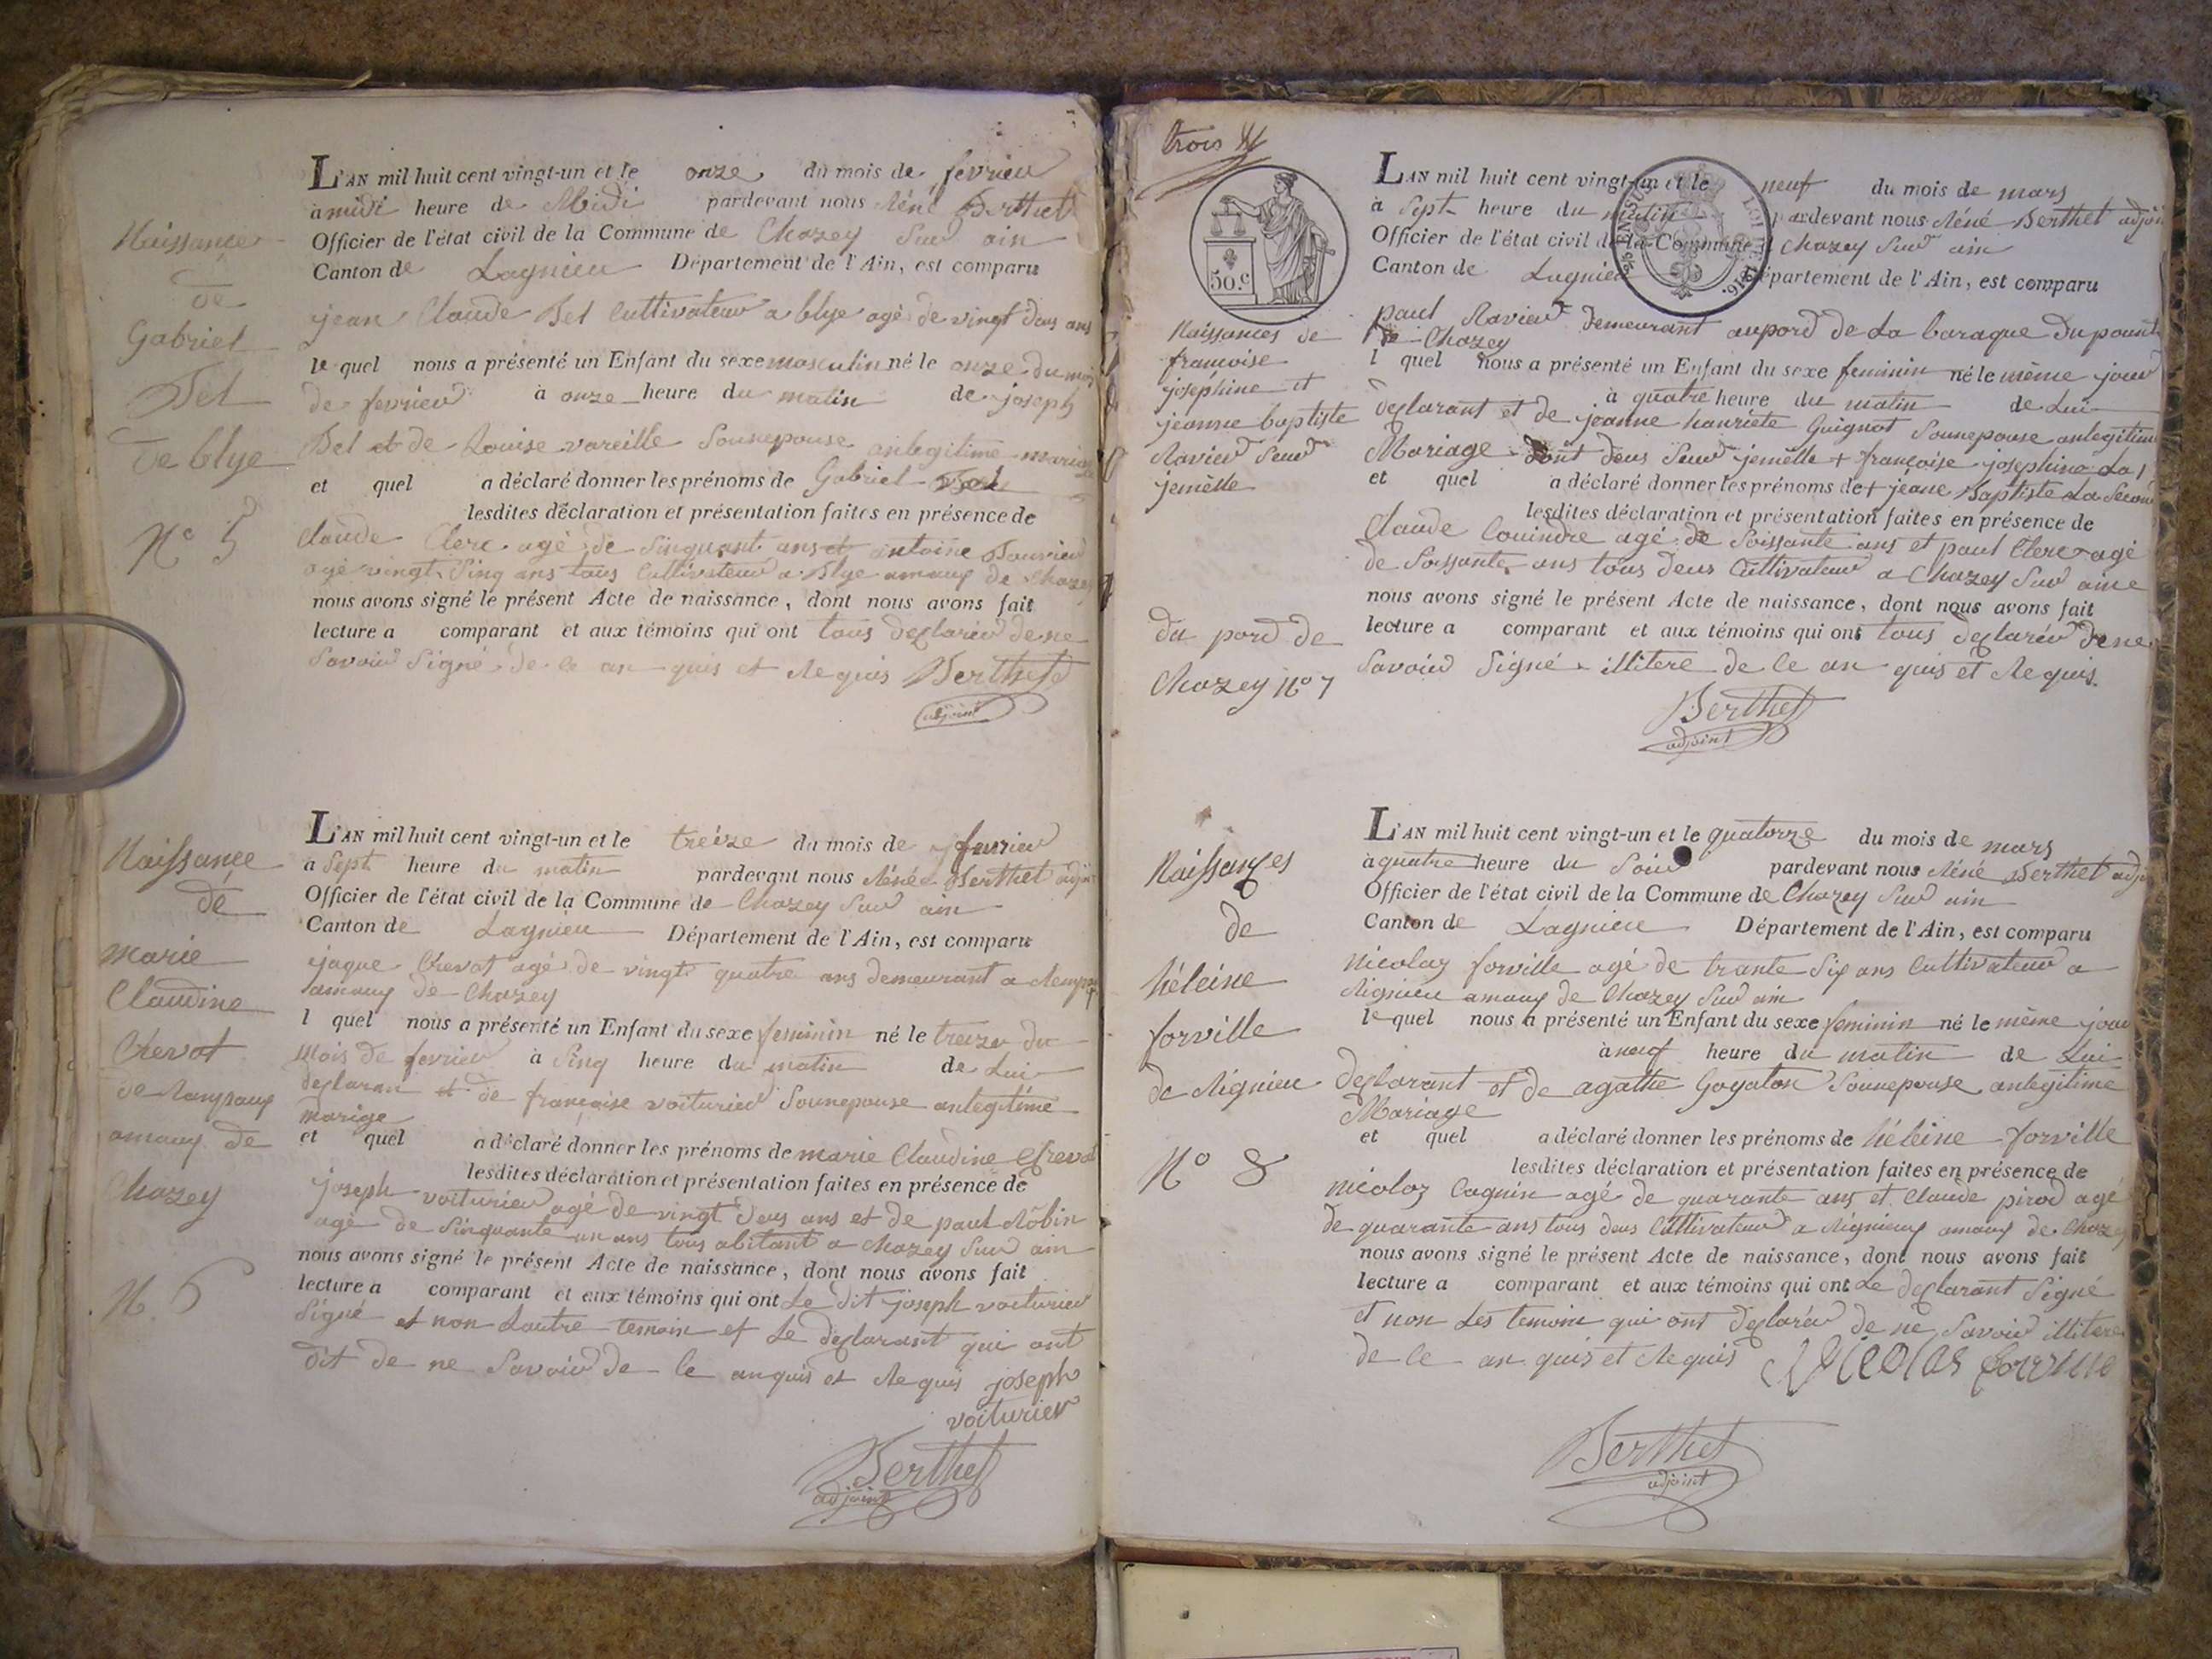 Naissance
de
Gabriel
Bel
de blye
N° 5
L'AN mil huit cent vingt-un et le onze du mois de fevrier
à midi heure de Midi pardevant nous Réné Berthet
Officier de l'état civil de la Commune de Chazey Sur ain
Canton de Lagnieu Département de l'Ain, est comparu
jean Claude Bel Cultivateur a blye agé de vingt deus ans
le quel nous a présenté un Enfant du sexe masculin né le onze du mois
de fevrier à onze heure du matin de joseph
Bel et de Louise vareille Sounepouse anlegitime mariage
et quel a déclaré donner les prénoms de Gabriel Bel
lesdites déclaration et présentation faites en présence de
Claude Clerc agé de Sinquant ans et antoine
agé vingt Sinq ans tous Cultivateur a Blye amaux de Chazey
nous avons signé le présent Acte de naissance, dont nous avons fait
lecture a comparant et aux témoins qui ont tous declarér de ne
Savoir Signé de ce an quis et Requis Berthet
adjoint
Naissance
de
marie
Claudine
Chevat
de
amaux de
Chazey
N. 6
L'AN mil huit cent vingt-un et le treize du mois de fevrier
a Sept heure du matin pardevant nous Réné Berthet adjoint
Officier de l'état civil de la Commune de Chazey Sur ain
Canton de Lagnieu Département de l'Ain, est comparu
jaque Chevat agé de vingt quatre ans demeurant a
amaux de Chazey
l quel nous a présenté un Enfant du sexe feminin né le treize du
Mois de fevrier à Sinq heure du matin de Lui
declaran et de françoise voiturier Sounepouse anlegitime
marige
et quel a déclaré donner les prénoms de marie Claudine Chevat
lesdites déclaration et présentation faites en présence de
joseph voiturier agé de vingt deus ans et de paul Robin
agé de Sinquante un ans tous abitant a Chazey Sur ain
nous avons signé le présent Acte de naissance, dont nous avons fait
lecture a comparant et aux témoins qui ont Le dit joseph voiturier
Signé et non Lautre temoin et Le declarant qui ont
dit de ne Savoir de ce anquis et Requis joseph
voiturier
Berthet
adjoint
trois
50.c
Naissances de
françoise
joséphine et
jeanne baptiste
Ravier Seur
jemelle
du pord de
Chazey N° 7
L'AN mil huit cent vingt-un et le neuf du mois de mars
à Sept heure du matin pardevant nous Réné Berthet adjoint
Officier de l'état civil de la Commune d Chazey Sur ain
Canton de Lagnieu Département de l'Ain, est comparu
paul Ravier demeurant aupord de La baraque du pount
de Chazey
l quel nous a présenté un Enfant du sexe feminin né le même jour
à quatre heure du matin de Lui
declarant et de jeanne hanriete Guignot Sounepouse anlegitime
Mariage dont deus Seur jemelle + françoise josephine La 1
et quel a déclaré donner les prénoms de + jeane Baptiste La Second
lesdites déclaration et présentation faites en présence de
Claude Couindre agé de Soissante ans et paul Clerc agé
de Soissante ans tous deus Cultivateur a Chazey Sur aine
nous avons signé le présent Acte de naissance, dont nous avons fait
lecture a comparant et aux témoins qui ont tous declarér de ne
Savoir Signé illitere de ce an quis et Requis.
Berthet
adjoint
Naissances
de
héleine
forville
de Rignieu
N° 8
L'AN mil huit cent vingt-un et le quatorze du mois de mars
à quatre heure du Soir pardevant nous Réné Berthet adjoint
Officier de l'état civil de la Commune de Chazey Sur ain
Canton de Lagnieu Département de l'Ain, est comparu
nicolas forville agé de trante Six ans Cultivateur a
Rignieu amaux de Chazey Sur ain
le quel nous a présenté un Enfant du sexe feminin né le même jour
à neuf heure du matin de Lui
declarant et de agathe Goyaton Sounepouse anlegitime
Mariage
et quel a déclaré donner les prénoms de héleine forville
lesdites déclaration et présentation faites en présence de
nicolas Cagnin agé de quarante ans et Claude pirod agé
de quarante ans tous deus Cultivateur a Rignieux amaux de Chazey
nous avons signé le présent Acte de naissance, dont nous avons fait
lecture a comparant et aux témoins qui ont Le declarant Signé
et non Les temoins qui ont declarér de ne Savoir illitere
de ce an quis et Requis Nicolas forville
Berthet
adjoint